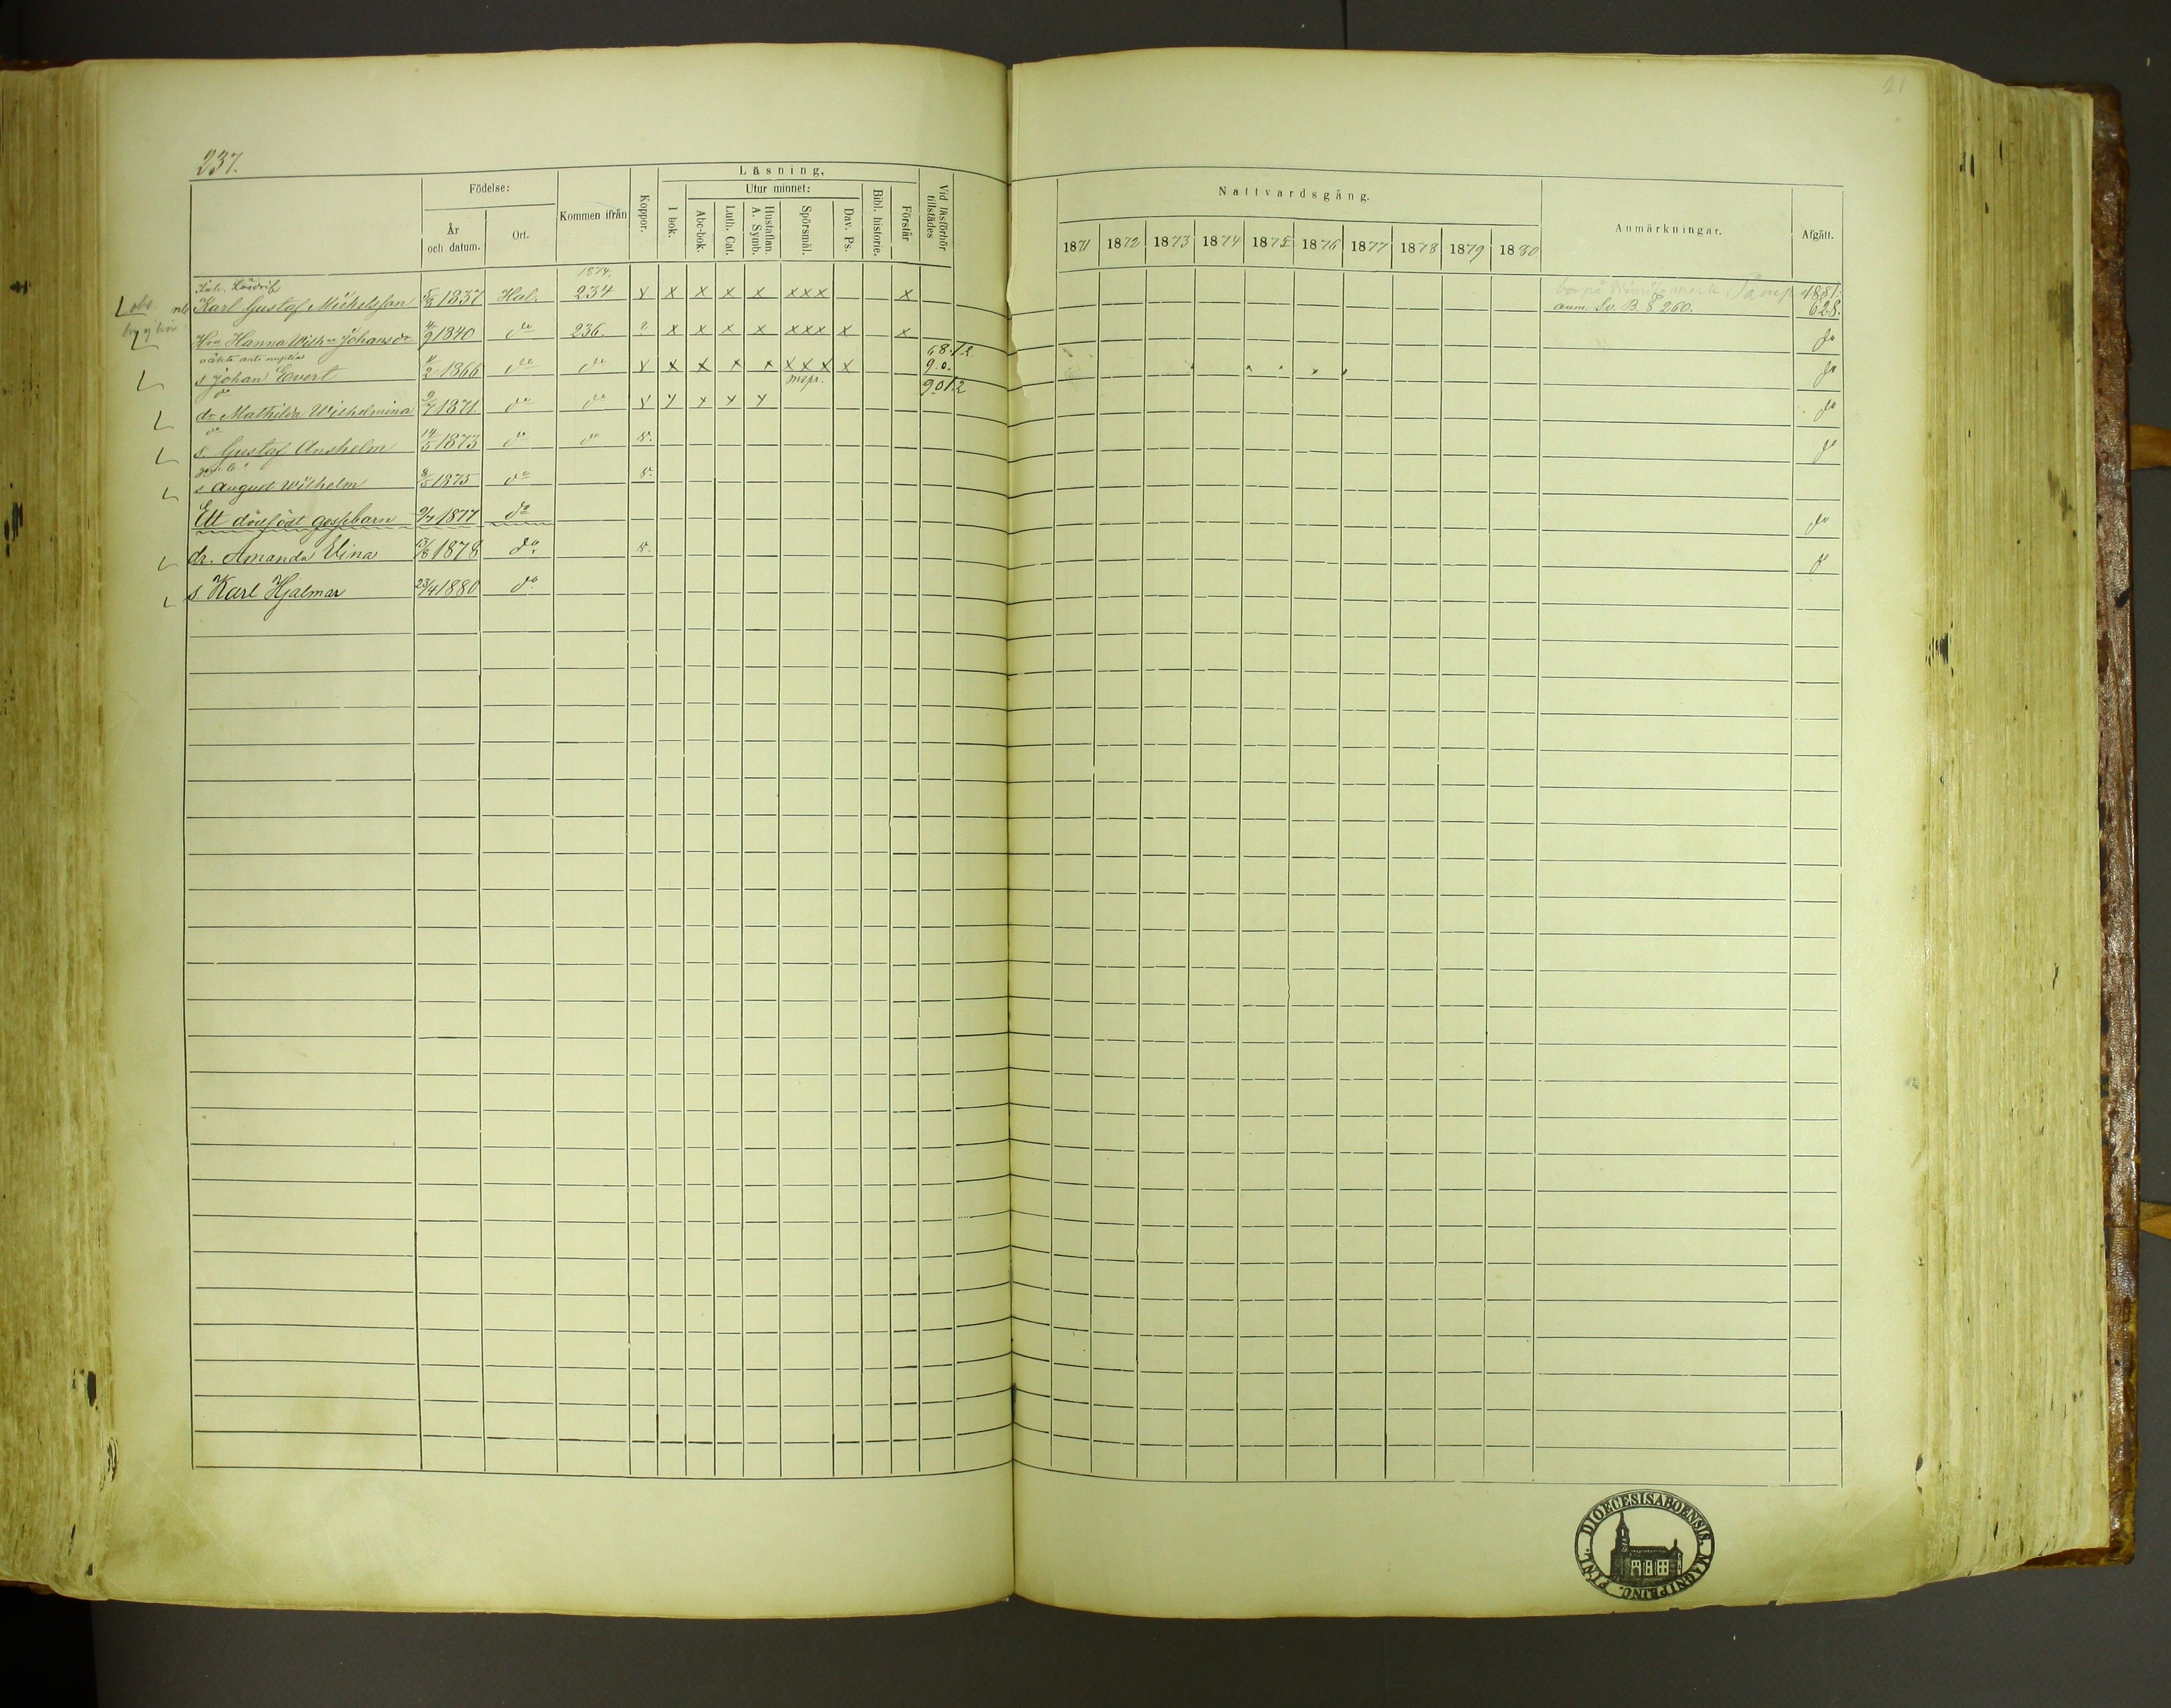 237.
21
Födelse:
År
och datum.
Ort.
Kommen ifrån
Koppor.
Läsning,
I bok.
Utur minnet:
Abc-bok.
Luth. Cat.
Hustaflan
A. Symb.
Spörsmål.
Dav. Ps.
Bibl. historie.
Förstår
Vid läsförhör
tillstädes
Nattvardsgång.
1871 1872 1873 1874 1875 1876 1877 1878 1879 1880
Anmärkningar.
Afgått.
1874.
obs. Karl Gustaf Michelsson 5/3 1837 Hal. 234 x x x x x xxx x 1881.
anm. Sv. B. § 260. 628.
Hru Hanna Wilh:a Johansdr 4/9 1840 do 236. ? x x x x xxx x x do
oäkta ante nuptias 68.12.
s Johan Evert 11/2 1866 do do x x x x x xxx x 9.0. do
do 90/2
dr Mathilda Wilhelmina 9/7 1871 do do x x x x x do
do
s. Gustaf Anshelm 14/5 1873 do do v. do
s August Wilhelm 8/5 1875 do v.
Ett dödfödt gossebarn 9/4 1877 do do
dr. Amanda Elina 13/8 1878 do. v. do
s. Karl Hjalmar 23/4 1880 do
DIOECESIS ABOENSIS. MAGNI PRINC. FINL.